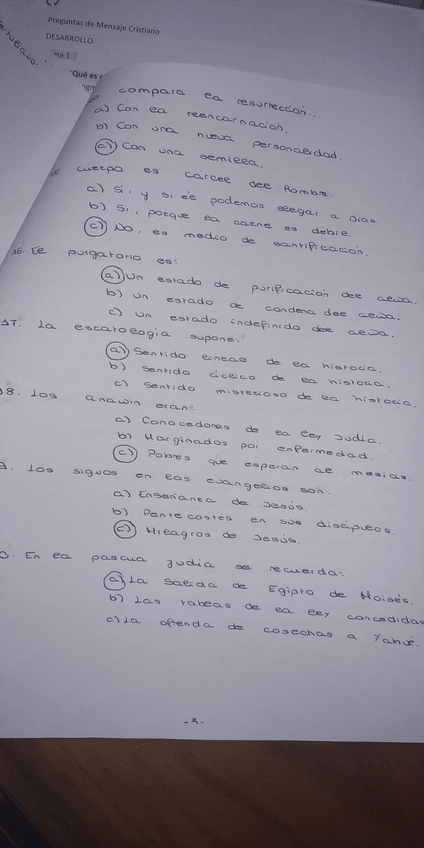 Preguntas de Mensaje Cristiano
DESARROLLO
ma 1
¿Qué es
compara la resurrección...
a) Con la reencarnación.
b) Con una nueva personalidad.
c) Con una semilla.
cuerpo es cárcel del hombre.
a) Sí, y si él podemos llegar a Dios.
b) Sí, porque la carne es débil.
c) No, es medio de santificación.
16. El purgatorio es:
a) Un estado de purificación del alma.
b) Un estado de condena del alma.
c) Un estado indefinido del alma.
17. La escatología supone:
a) Sentido lineal de la historia.
b) Sentido cíclico de la historia.
c) Sentido misterioso de la historia.
18. Los anawin eran:
a) Conocedores de la ley Judía.
b) Marginados por enfermedad.
c) Pobres que esperan al mesías.
. Los signos en los evangelios son:
a) Enseñanza de Jesús.
b) Pentecostés en sus discípulos.
c) Milagros de Jesús.
0. En la pascua judía se recuerda:
a) La Salida de Egipto de Moisés.
b) Las tablas de la ley concedidas
c) La ofrenda de cosechas a Yahvé.
-2.-